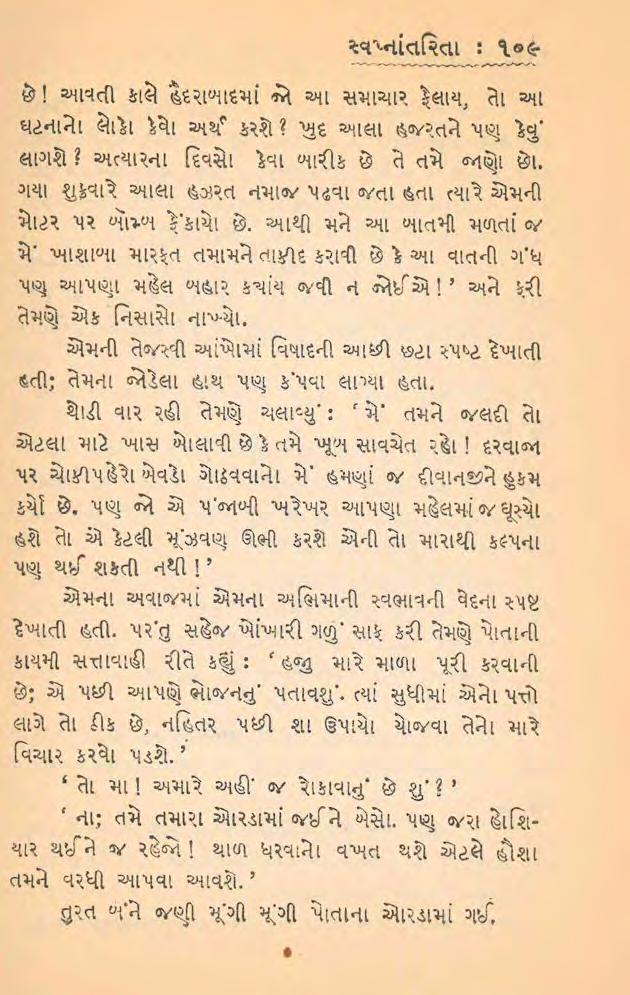 સ્વપ્નાંતરિતા : ૧૦૯
છે! આવતી કાલે હૈદરાબાદમાં જો આ સમાચાર ફેલાય, તો આ
ઘટનાનો લોકો કેવો અર્થ કરશે? ખુદ આલા હજરતને પણ કેવું
લાગશે? અત્યારના દિવસો કેવા બારીક છે તે તમે જાણો છો.
ગયા શુક્રવારે આલા હઝરત નમાજ પઢવા જતા હતા ત્યારે એમની
મોટર પર બૉમ્બ ફેંકાયો છે. આથી મને આ બાતમી મળતાં જ
મેં ખાશાબા મારફત તમામને તાકીદ કરાવી છે કે આ વાતની ગંધ
પણ આપણા મહેલ બહાર ક્યાંય જવી ન જોઈએ!' અને ફરી
તેમણે એક નિસાસો નાખ્યો.
એમની તેજસ્વી આંખોમાં વિષાદની આછી છટા સ્પષ્ટ દેખાતી
હતી; તેમના જોડેલા હાથ પણ કંપવા લાગ્યા હતા.
થોડી વાર રહી તેમણે ચલાવ્યું : ‘મેં તમને જલદી તો
એટલા માટે ખાસ બોલાવી છે કે તમે ખૂબ સાવચેત રહો! દરવાજા
પર ચોકીપહેરો બેવડો ગોઠવવાનો મેં હમણાં જ દીવાનજીને હુકમ
કર્યો છે. પણ જો એ પંજાબી ખરેખર આપણા મહેલમાં જ ઘૂસ્યો
હશે તો એ કેટલી મૂંઝવણ ઊભી કરશે એની તો મારાથી કલ્પના
પણ થઈ શકતી નથી!'
એમના અવાજમાં એમના અભિમાની સ્વભાવની વેદના સ્પષ્ટ
દેખાતી હતી. પરંતુ સહેજ ખોંખારી ગળું સાફ કરી તેમણે પોતાની
કાયમી સત્તાવાહી રીતે કહ્યું : ‘હજુ મારે માળા પૂરી કરવાની
છે; એ પછી આપણે ભોજનનું પતાવશું. ત્યાં સુધીમાં એનો પત્તો
લાગે તો ઠીક છે, નહિતર પછી શા ઉપાયો યોજવા તેનો મારે
વિચાર કરવો પડશે.’
‘તો મા! અમારે અહીં જ રોકાવાનું છે શું?’
‘ના; તમે તમારા ઓરડામાં જઈને બેસો. પણ જરા હોશિ-
યાર થઈને જ રહેજો! થાળ ધરવાનો વખત થશે એટલે હૌશા
તમને વરધી આપવા આવશે.’
તુરત બંને જણી મૂંગી મૂંગી પોતાના ઓરડામાં ગઈ.